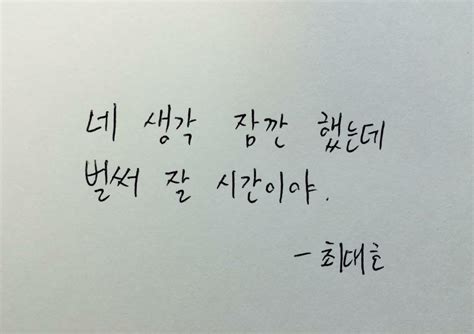 네 생각 잠깐 했는데
벌써 잘 시간이야.
- 최대호